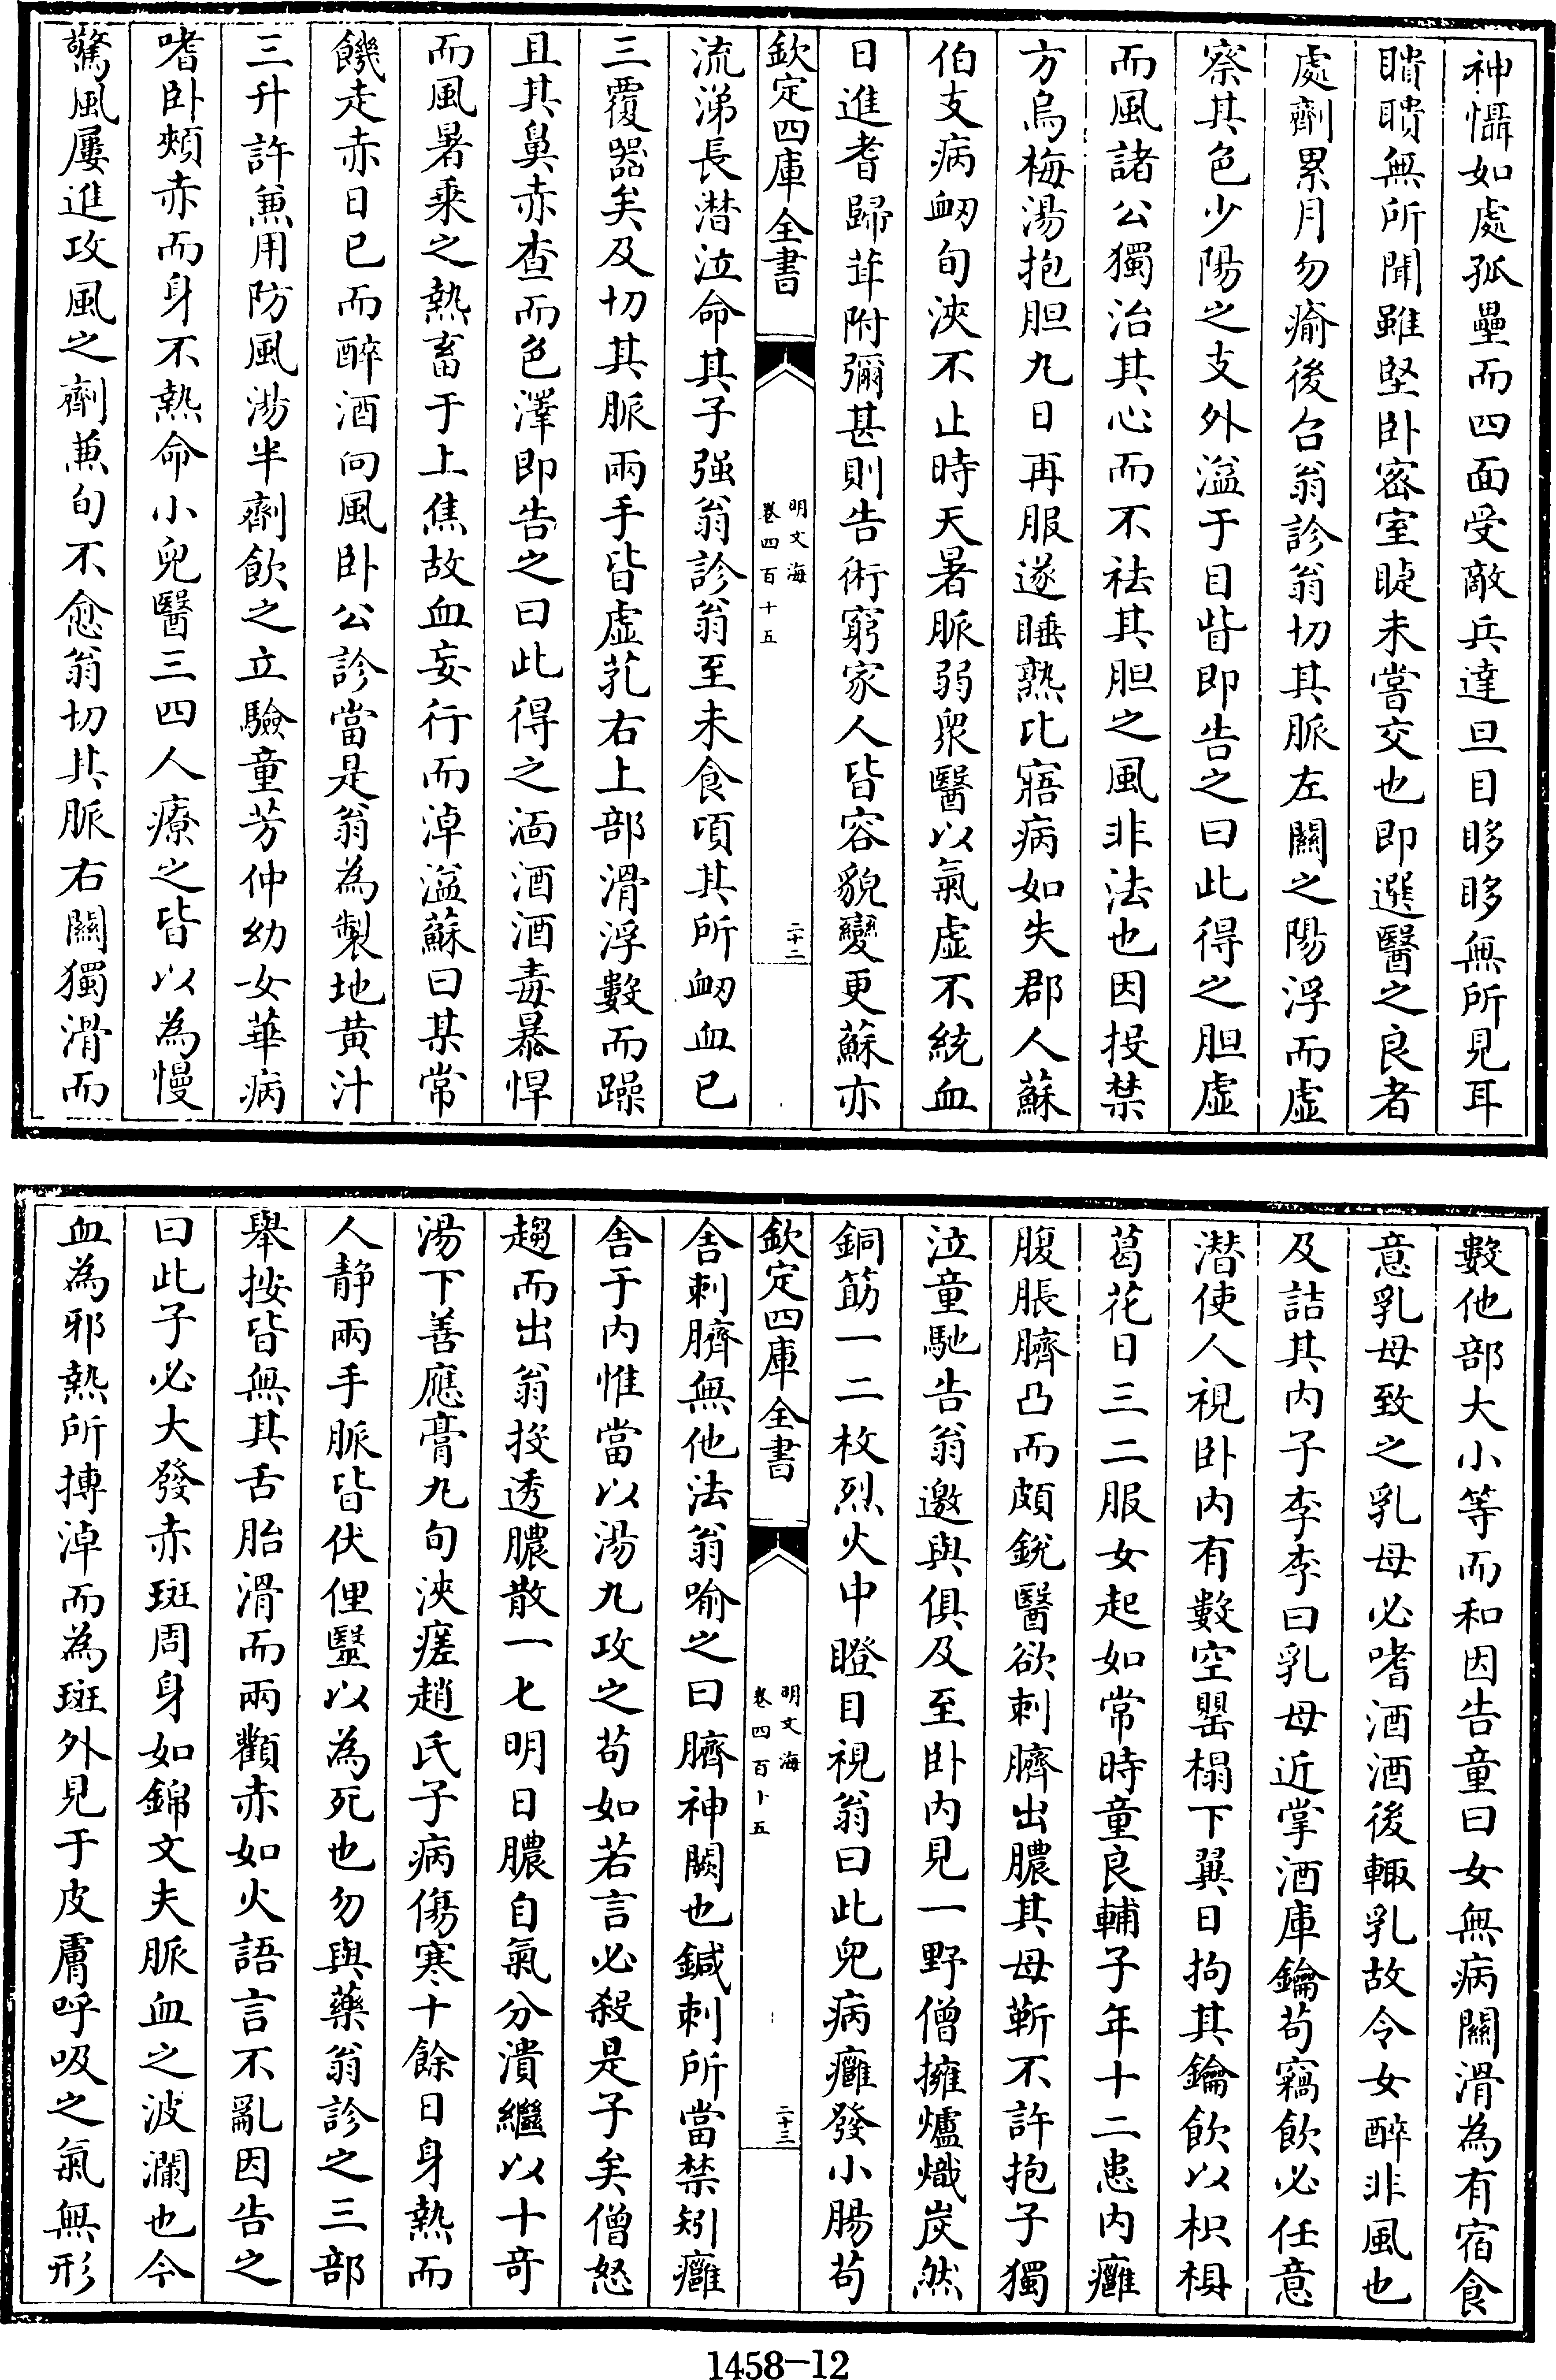 神懾如處孤壘而四面受敵兵達旦目眵眵無所見耳
聵聵無所聞雖堅卧密室睫未嘗交也即選醫之良者
處劑累月勿瘉後召翁診翁切其脈左關之陽浮而虛
察其色少陽之支外溢于目眥即告之曰此得之胆虛
而風諸公獨治其心而不祛其胆之風非法也因投禁
方烏梅湯抱胆丸日再服遂睡熟比寤病如失郡人蘇
伯支病衂旬浹不止時天暑脈弱衆醫以氣虛不統血
日進耆歸茸附彌甚則告術窮家人皆容貌變更蘇亦
欽定四庫全書
明文海
卷四百十五
二十二
流涕長潛泣命其子强翁診翁至未食頃其所衂血已
三覆器矣及切其脈兩手皆虛芤右上部滑浮數而躁
且其鼻赤查而色澤即告之曰此得之湎酒酒毒暴悍
而風暑乘之熱畜于上焦故血妄行而淖溢蘇曰某常
饑走赤日已而醉酒向風卧公診當是翁為製地黄汁
三升許兼用防風湯半劑飲之立驗童芳仲幼女華病
嗜卧頰赤而身不熱命小兒醫三四人療之皆以為慢
驚風屢進攻風之劑兼旬不愈翁切其脈右關獨滑而
數他部大小等而和因告童曰女無病關滑為有宿食
意乳母致之乳母必嗜酒酒後輙乳故令女醉非風也
及詰其内子李李曰乳母近掌酒庫鑰茍竊飲必任意
潜使人視卧内有數空罌榻下異日拘其鑰飲以枳椇
葛花日三二服女起如常時童良輔子年十二患内癰
腹脹臍凸而頗鋭醫欲刺臍出膿其母靳不許抱子獨
泣童馳告翁邀與俱及至卧内見一野僧擁爐熾炭然
銅筯一二枚烈火中瞪目視翁曰此兒病癰發小腸茍
欽定四庫全書
明文海
卷四百十五
二十三
舍刺臍無他法翁喻之曰臍神闕也鍼刺所當禁矧癰
舍于内惟當以湯丸攻之茍如若言必殺是子矣僧怒
趨而出翁投透膿散一七明日膿自氣分潰繼以十奇
湯下善應膏丸旬浹瘥趙氏子病傷寒十餘日身熱而
人静兩手脈皆伏俚毉以為死也勿與藥翁診之三部
舉按皆無其舌胎滑而兩顴赤如火語言不亂因告之
曰此子必大發赤斑周身如錦文夫脈血之波瀾也今
血為邪熱所搏淖而為斑外見于皮膚呼吸之氣無形
1458-12